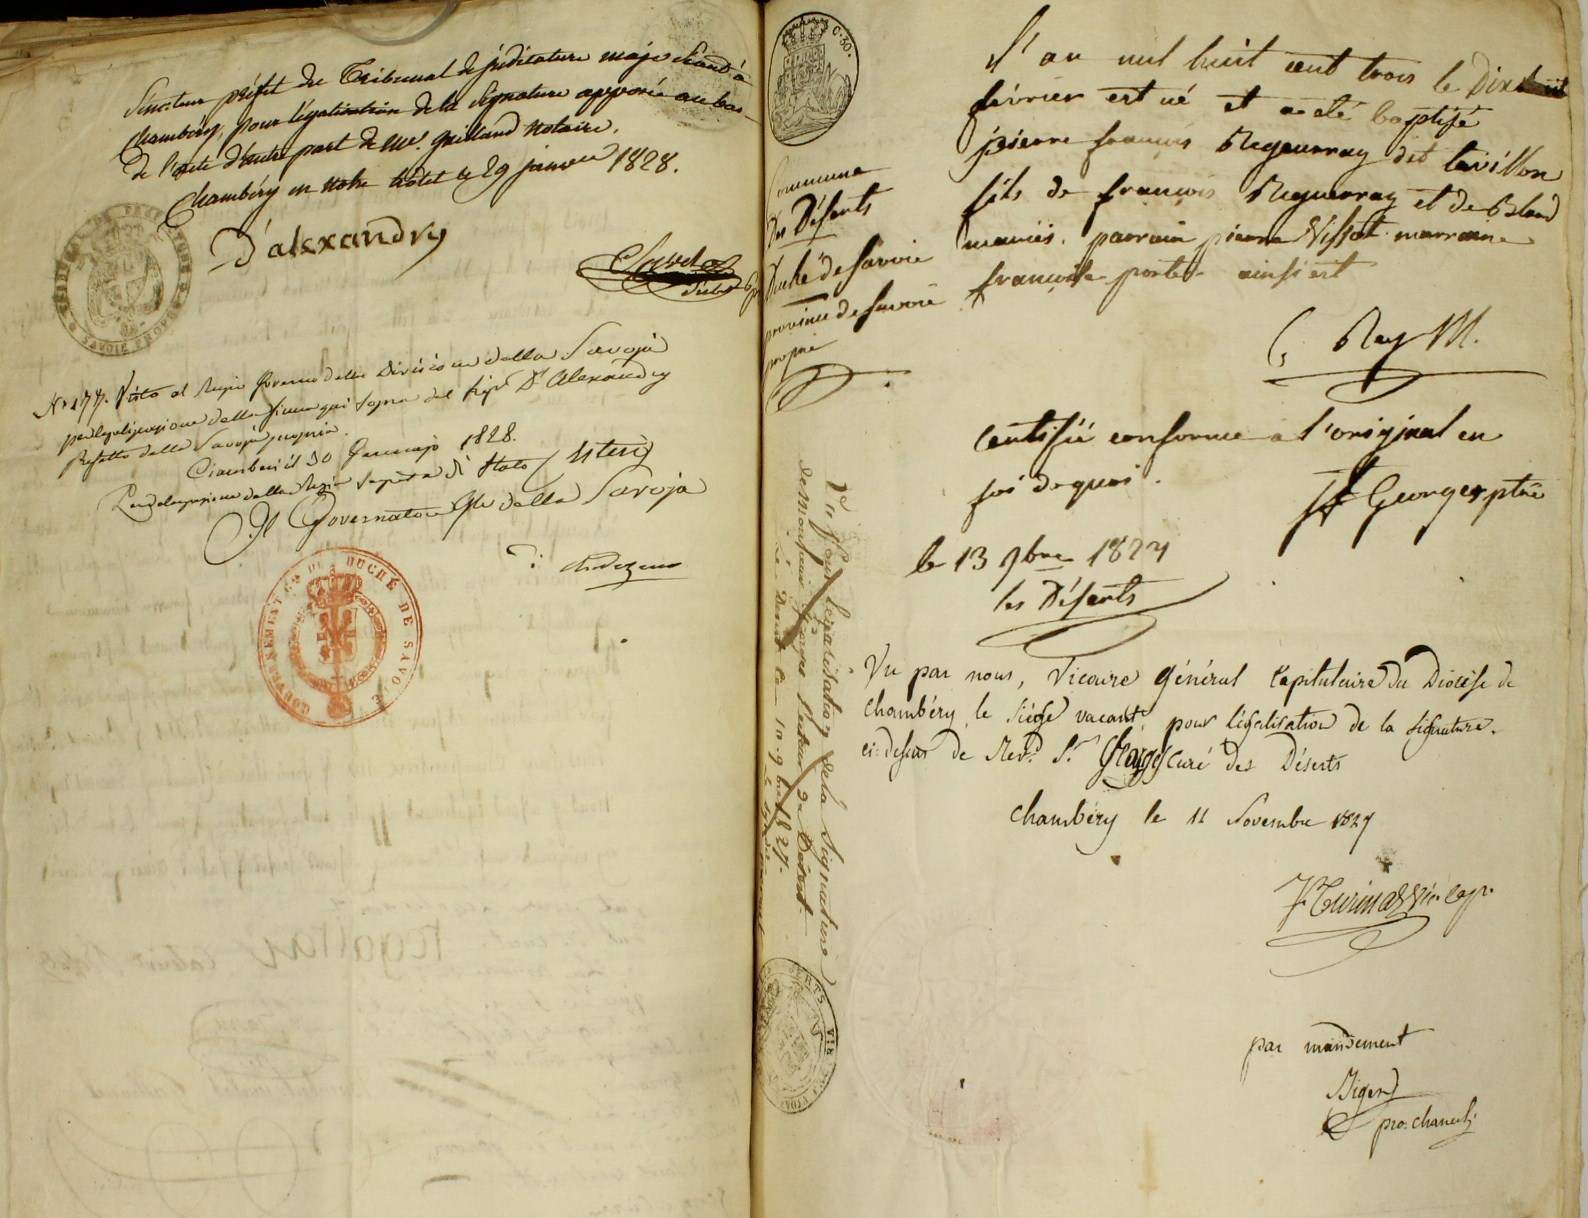 Sénateur préfet du Tribunal de judicature maje séant à
Chambéry, pour légalisation de la signature apposée au bas
de l'acte d'autre part de Me. Gailland Notaire.
Chambéry en notre hôtel le 29 janvier 1828.
D'alexandry
N° 177. Visto al Regio Governo della Divisione della Savoja
per legalizzazione della firma qui sopra del Sigr. D' Alexandry
Prefetto della Savoja propria.
Ciamberì il 30 Gennajo 1828.
Per delegazione della Regia Segria di Stato (Esteri)
Il Governatore Gle della Savoja
GOUVERNEMENT GAL DU DUCHÉ DE SAVOIE
C. 30.
Commune
des Déserts
Duché de Savoie
province de Savoie
propre
L'an mil huit cent trois le Dix huit
février est né et a été baptisé
pierre françois Regueurray dit lavillon
fils de françois Regueurray et de
mariés. parrain pierre Vissot marraine
françoise porter ainsi est
Rey M.
Certifié conforme a l'original en
foi de quoi.
Georges ptre
le 13 9bre 1827
les Déserts
Vu par nous, Vicaire général Capitulaire du Diocèse de
Chambéry, le Siège vacant, pour légalisation de la signature
ci-dessus de Revd. Sr. George Curé des Déserts
Chambéry le 11 Novembre 1827
Turinaz Vic. cap.
par mandement
pro. chancel.
Vu pour légalisation de la Signature
de Monsieur George Recteur du Désert.
1827.